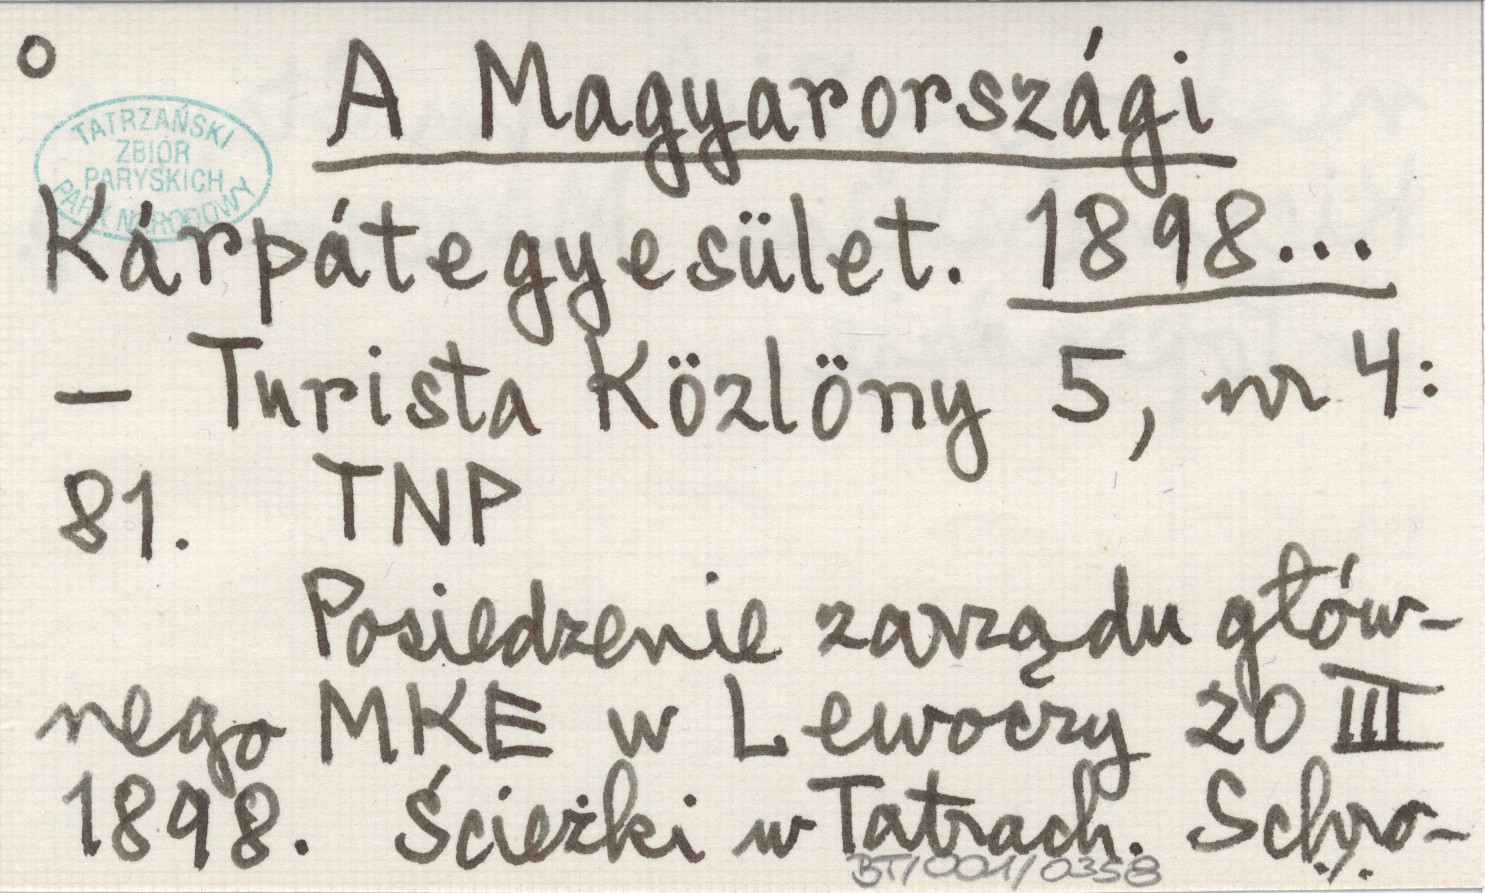 o
A Magyarországi
TATRZAŃSKI
ZBIÓR
PARYSKICH
PARK NARODOWY
Kárpátegyesület. 1898...
— Turista Közlöny 5, nr 4:
81. TNP
Posiedzenie zarządu głów-
nego MKE w Lewoczy 20 III
1898. Ścieżki w Tatrach. Schro-
BT/001/0358